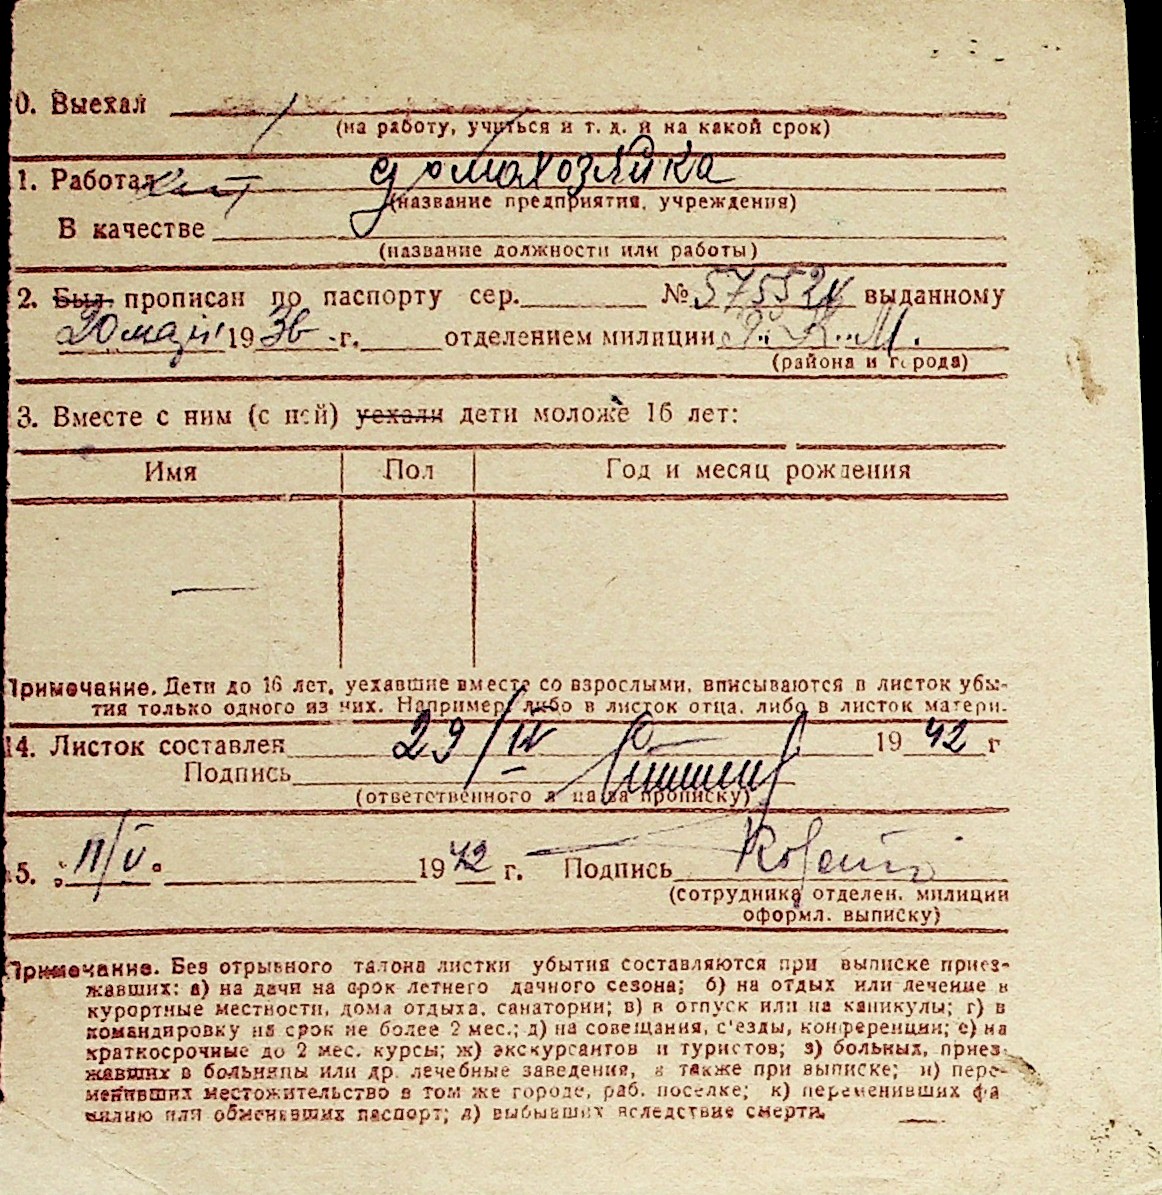 0. Выехал
(на работу, учиться и т. д. и на какой срок)
1. Работал домохозяйка
(название предприятия, учреждения)
В качестве
(название должности или работы)
2. Был прописан по паспорту сер. № 575524 выданному
20 мая 1936 г. отделением милиции Р. К. М.
(района и города)
3. Вместе с ним (с ней) уехали дети моложе 16 лет:
Имя Пол Год и месяц рождения
—
Примечание. Дети до 16 лет, уехавшие вместе со взрослыми, вписываются в листок убы-
тия только одного из них. Например либо в листок отца, либо в листок матери.
14. Листок составлен 29/IV 1942 г
Подпись
(ответственного за прописку)
15. 11/V. 1942 г. Подпись
(сотрудника отделен. милиции
оформл. выписку)
Примечание. Без отрывного талона листки убытия составляются при выписке приез-
жавших: а) на дачи на срок летнего дачного сезона; б) на отдых или лечение в
курортные местности, дома отдыха, санатории; в) в отпуск или на каникулы; г) в
командировку на срок не более 2 мес.; д) на совещания, с'езды, конференции; е) на
краткосрочные до 2 мес. курсы; ж) экскурсантов и туристов; з) больных, приез-
жавших в больницы или др. лечебные заведения, а также при выписке; и) пере-
менивших местожительство в том же городе, раб. поселке; к) переменивших фа
милию или обменявших паспорт; л) выбывших вследствие смерти.